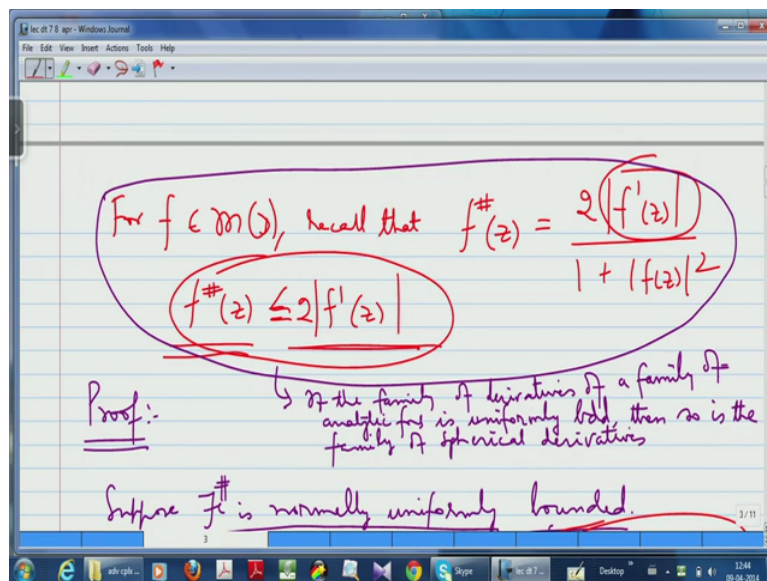 lec dt 7 8 apr - Windows Journal
File Edit View Insert Actions Tools Help
For f ∈ m(D), recall that f^#(z) = 2|f'(z)| / 1 + |f(z)|^2
f^#(z) ≤ 2|f'(z)|
↳ If the family of derivatives of a family of
Proof:- analytic fns is uniformly bdd, then so is the
family of spherical derivatives
Suppose F^# is normally uniformly bounded.
3/11
3
adv cplx ... Skype lec dt 7 ... Desktop 12:44
09-04-2014